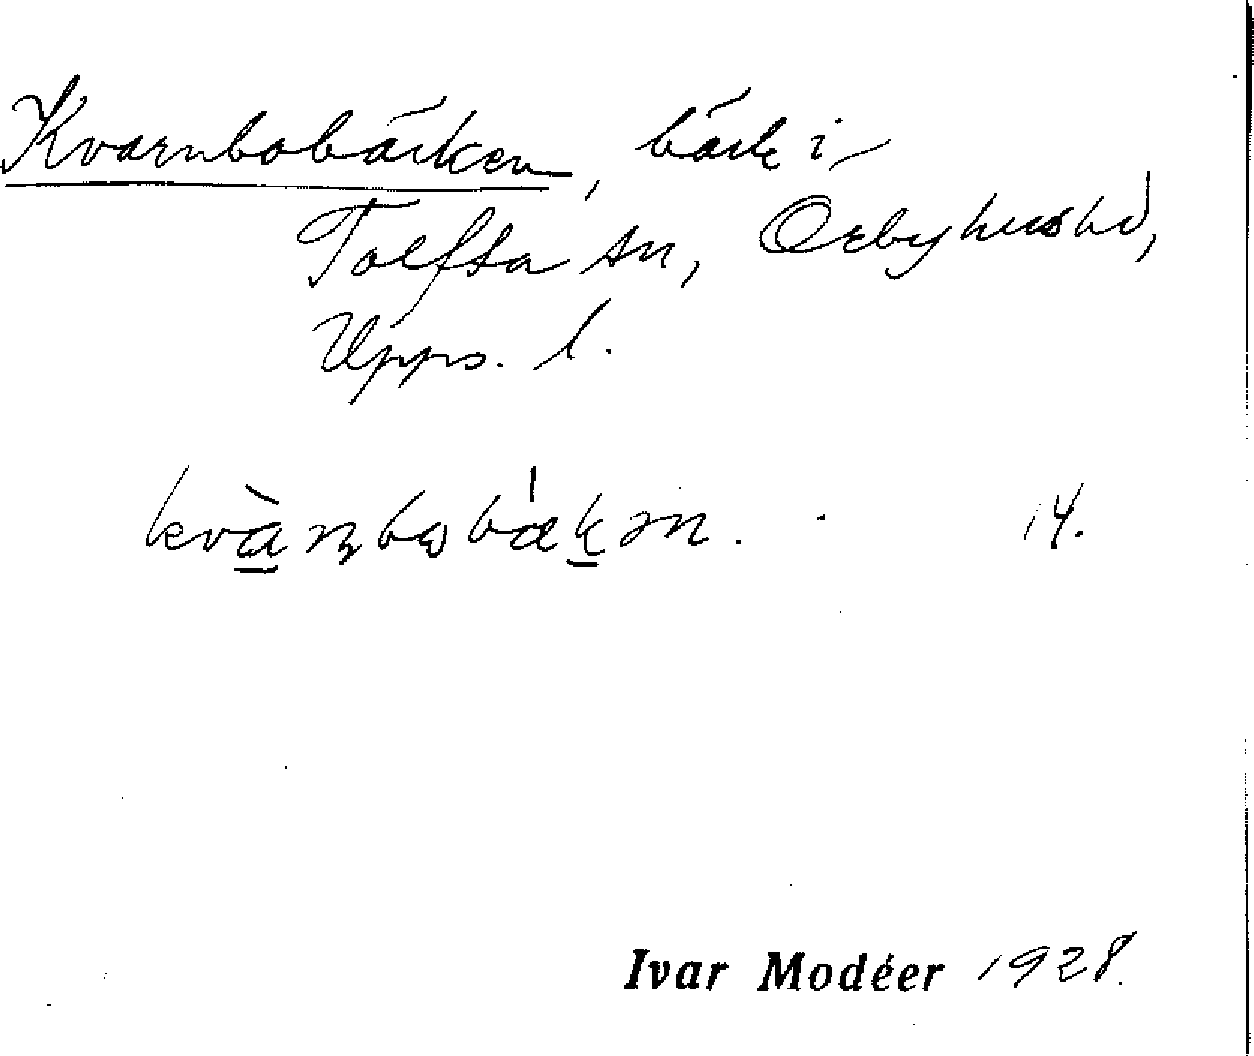 Kvarnbobäcken, bäck i
Tolfta sn, Örbyhus hd,
Upps. l.
14.
Ivar Modéer 1928.